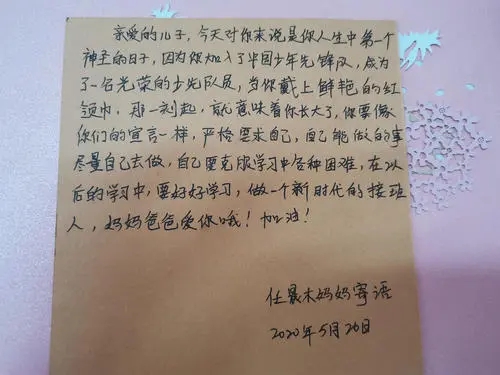 亲爱的儿子,今天对你来说是你人生中第一个
神圣的日子,因为你加入了中国少年先锋队,成为
了一名光荣的少先队员,当你戴上鲜艳的红
领巾,那一刻起,就意味着你长大了,你要像
你们的宣言一样,严格要求自己,自己能做的事
尽量自己去做,自己要克服学习中各种困难,在以
后的学习中,要好好学习,做一个新时代的接班
人,妈妈爸爸爱你哦!加油!
任晨木妈妈寄语
2020年5月26日